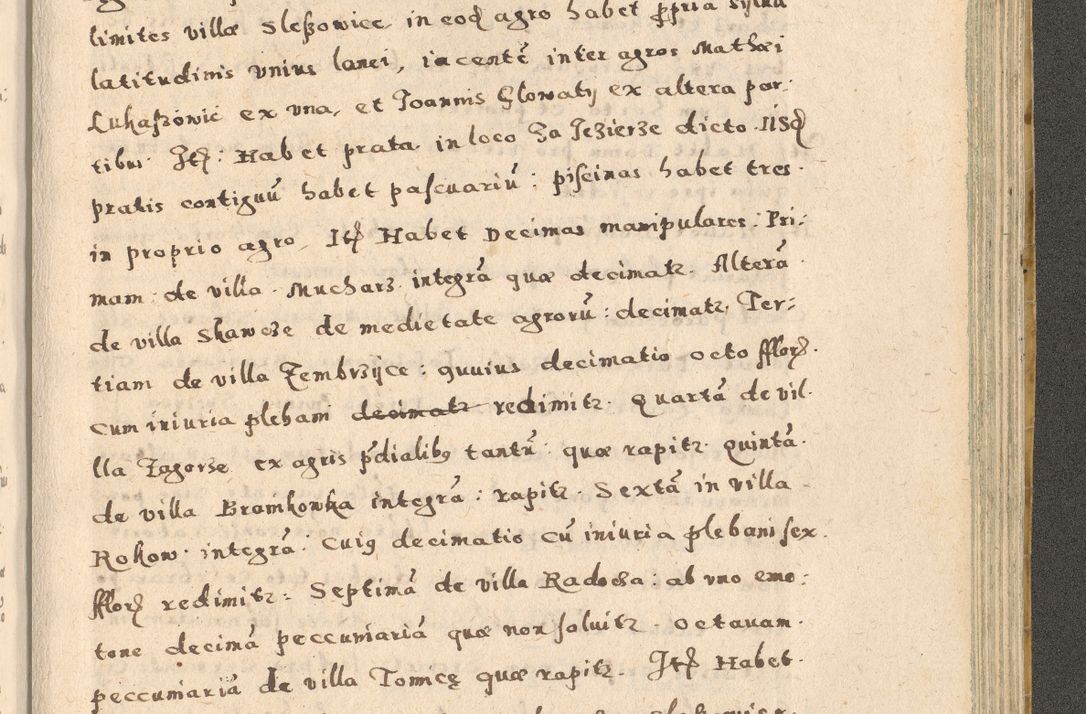 limites villæ Sleßowice in eod agro habet ppria sylua
latitudinis vnius lanei, iacentē inter agros Mathæi
Lukaßowic ex vna, et Joannis Glowatÿ ex altera par:
tibus. Itē: Habet prata in loco Za Jezierze dicto. IISd
pratis contiguū habet pascuariū: piscinas habet tres.
in proprio agro. Itē Habet Decimas manipulares: Pri:
mam: de villa. Mucharz. integrā quæ decimatr. Alterā.
de villa Skawcze de medietate agrorū: decimatr. Ter:
tiam de villa Zembrzÿce: quuius decimatio octo fflor.
cum iniuria plebani decimatr redimitr. Quartā de vil.
lla Zagorze ex agris pdialibq tantū: quæ rapitr. Quintā.
de villa Bromkowka integrā: rapitr. Sextā in villa
Rokow. integrā. Cuiq decimatio cū iniuria plebani sex.
fflor redimitr: Septimā de villa Radocza: ab vno emo:
tone decimā peccuniariā quæ non soluitr. Octauam.
peccuniariā de villa Tomicę quæ rapitr. Itē Habet.